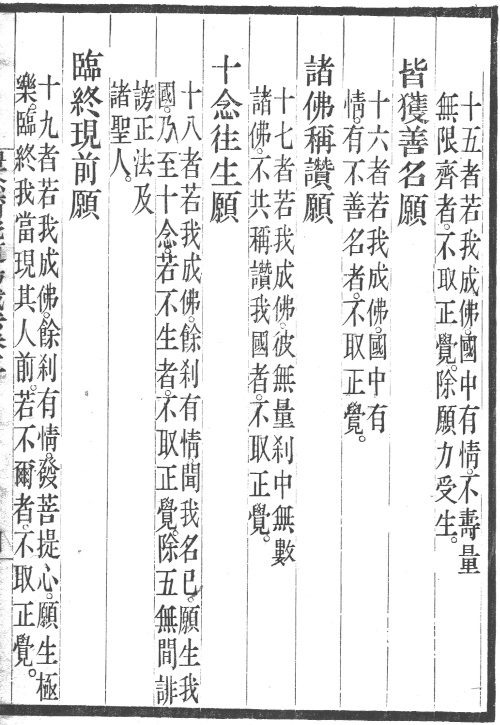 十五者若我成佛。國中有情。不壽量
無限齊者。不取正覺。除願力受生。
皆獲善名願
十六者若我成佛。國中有
情。有不善名者。不取正覺。
諸佛稱讚願
十七者若我成佛。彼無量刹中無數
諸佛。不共稱讚我國者。不取正覺。
十念往生願
十八者若我成佛。餘刹有情聞我名已。願生我
國。乃至十念。若不生者。不取正覺。除五無間誹
謗正法及
諸聖人。
臨終現前願
十九者若我成佛。餘刹有情。發菩提心。願生極
樂。臨終我當現其人前。若不爾者。不取正覺。